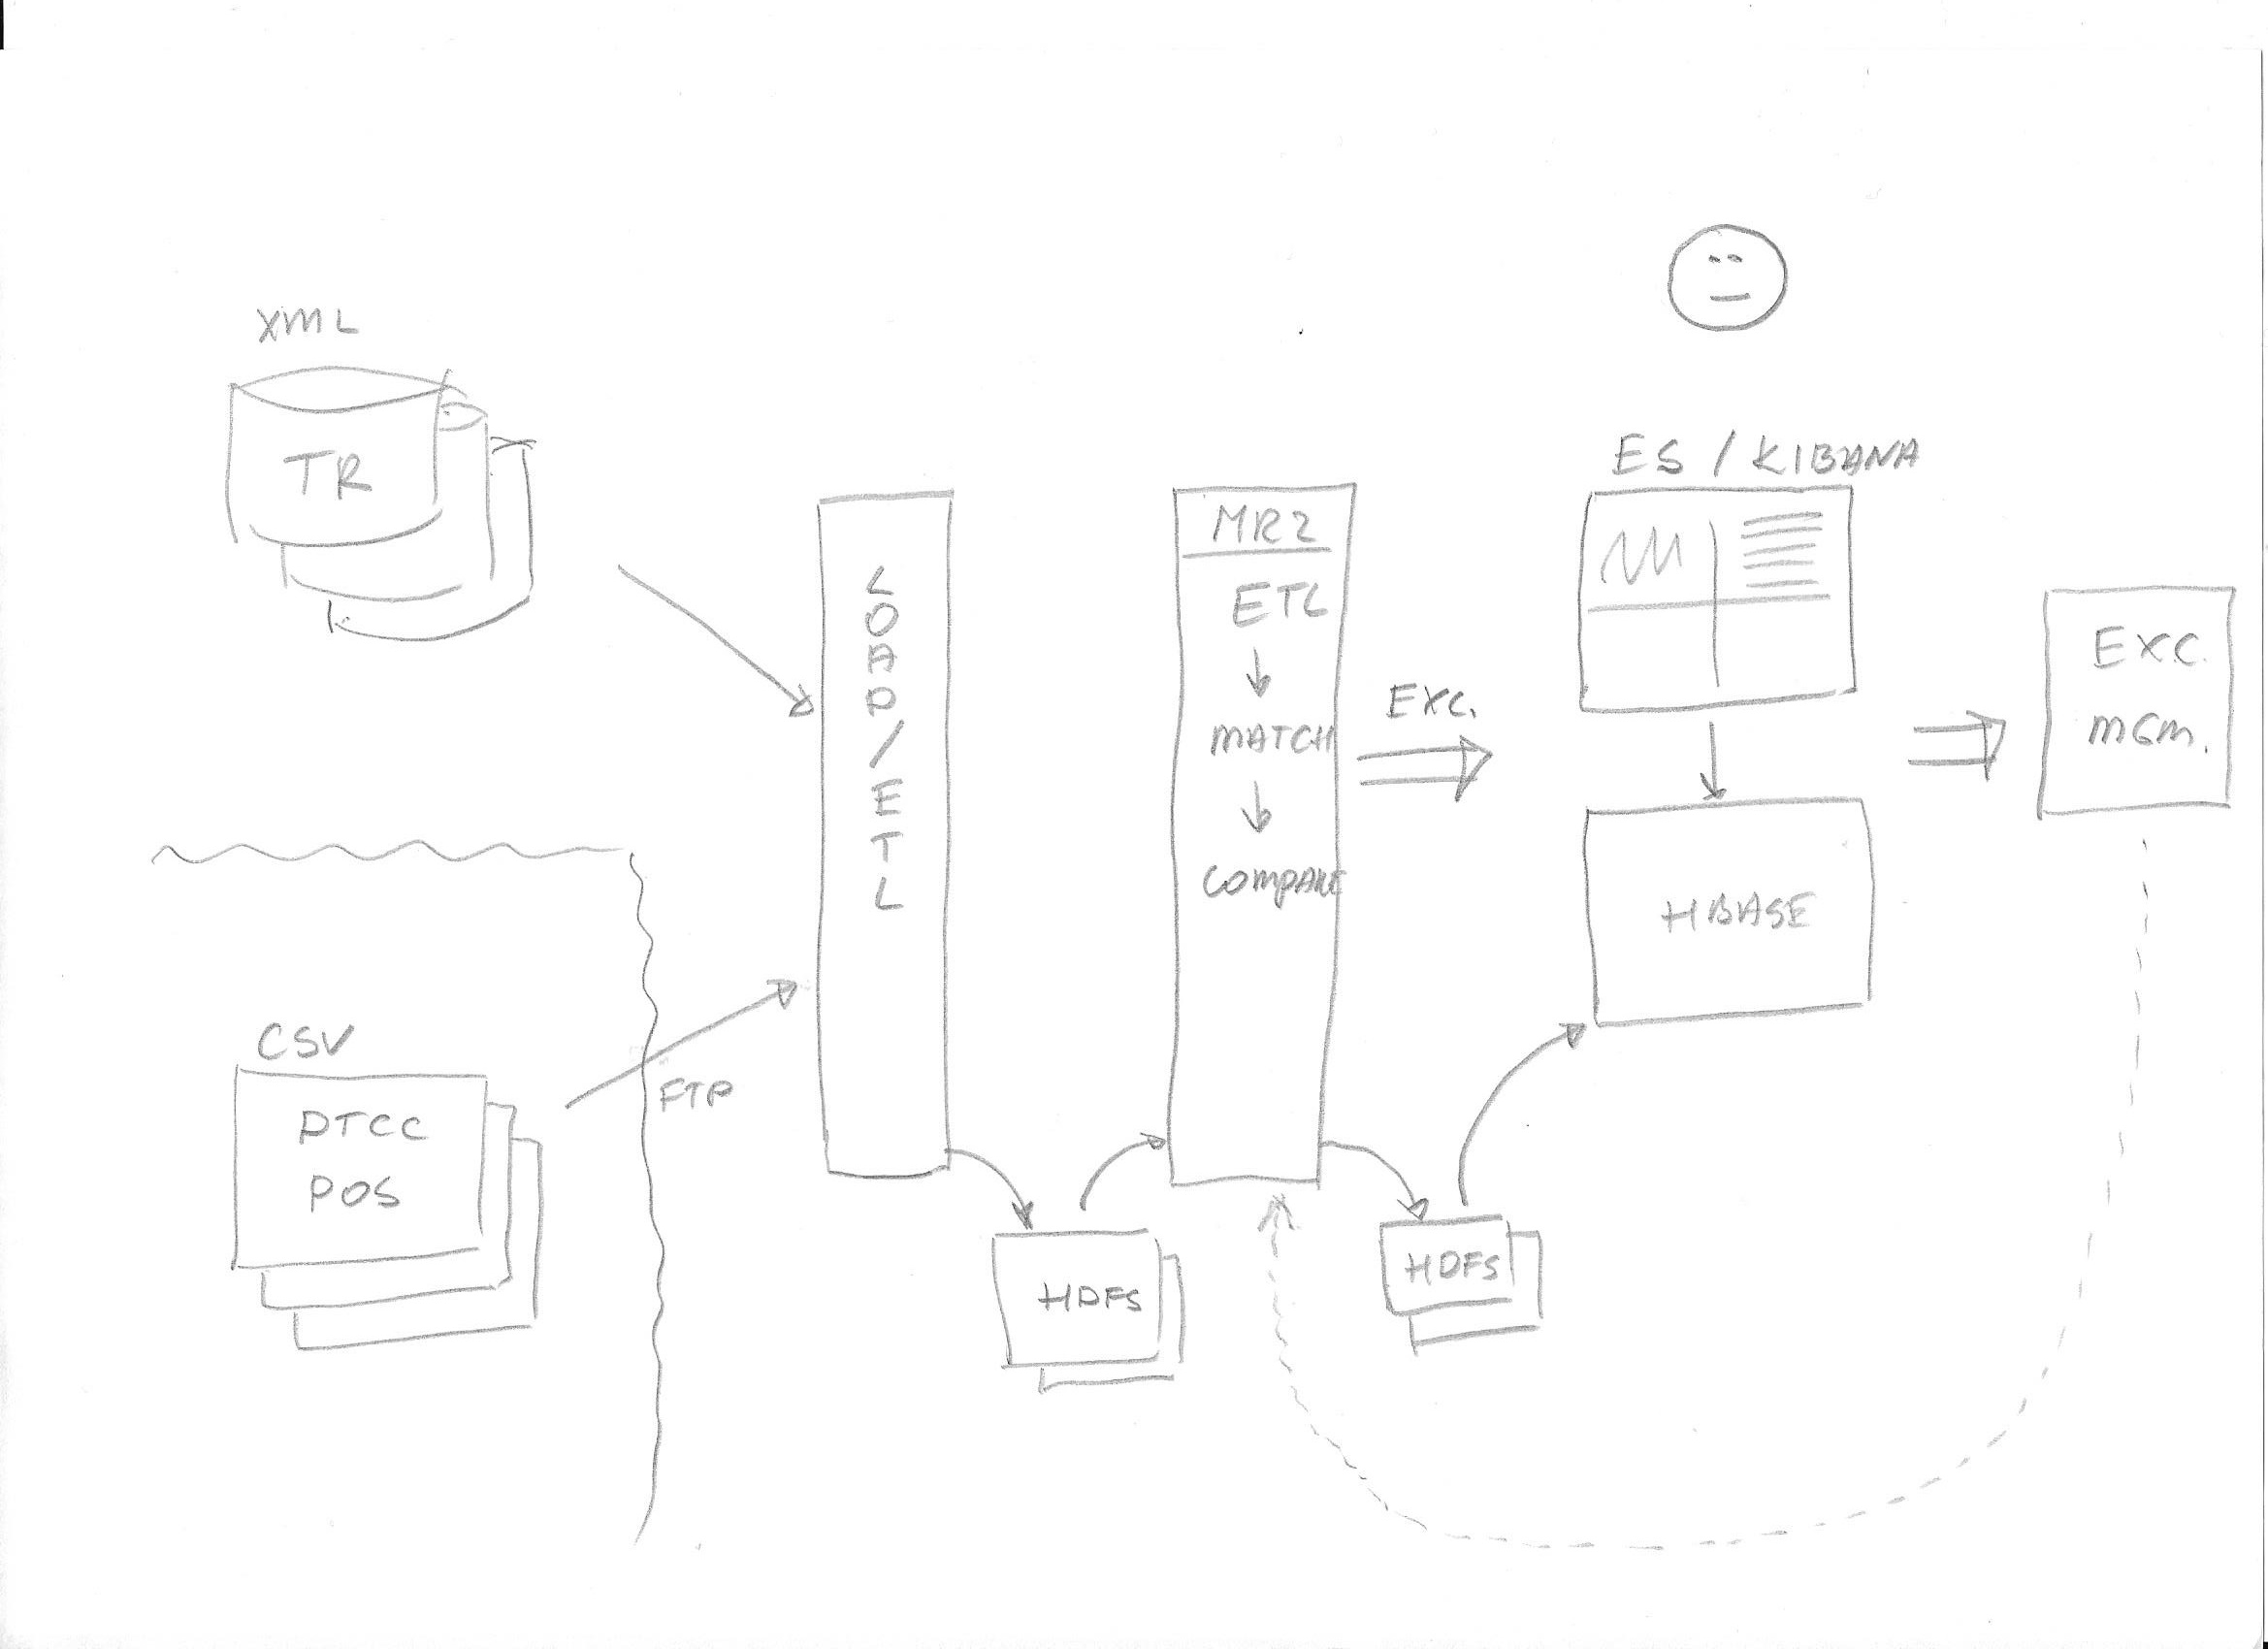 XML
TR
CSV
DTCC
POS
FTP
LOAD/ETL
HDFS
MR2
ETL
MATCH
COMPARE
EXC.
HDFS
ES / KIBANA
HBASE
EXC.
MGM.